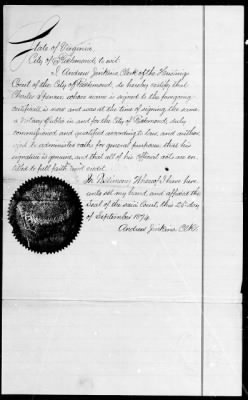 State of Virginia
City of Richmond, to wit:
I Andrew Jenkins Clerk of the Hustings
Court of the City of Richmond, do hereby certify that
Charles Spencer whose name is signed to the foregoing
certificate is now and was at the time of signing the same
a Notary Public in and for the City of Richmond, duly
commissioned and qualified according to law, and author-
ized to administer oaths for general purposes: that his
signature is genuine, and that all of his official acts are en-
titled to full faith and credit.
In Testimony Whereof I have here
unto set my hand, and affixed the
Seal of the said Court, this 25th day
of September 1874.
Andrew Jenkins Clk.